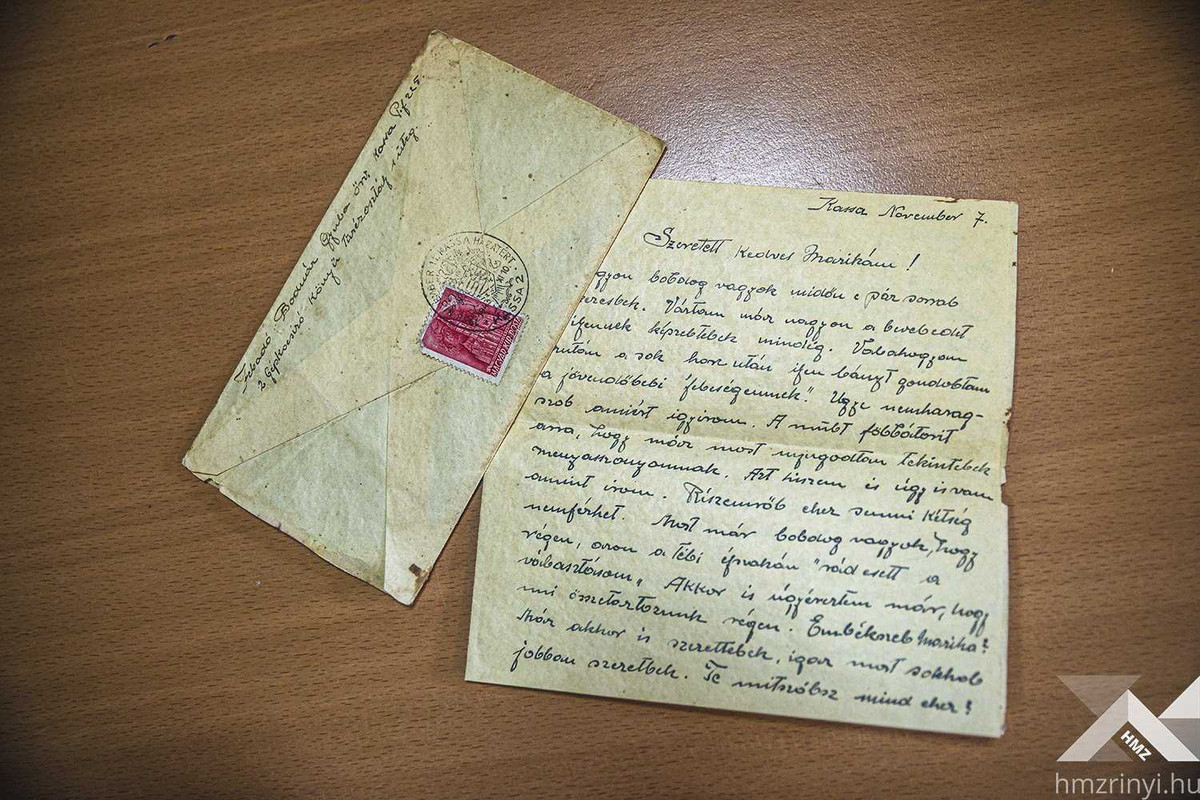 Bodnár Gyula őrv. Kassa P.f 225.
2 Gépkocsizó Könnyű Tarackosztály 1 üteg.
KASSA 2
MAGYAR
Kassa November 7.
Szeretett Kedves Marikám!
gyon boldog vagyok midőn e pár sorral
ereslek. Vártam már nagyon a leveledet
ilyennek képzeltelek mindég. Valahogyan
után a sok harc után ilyen lányt gondoltam
a jövendőbeli feleségemnek". Ugye nem harag-
szol amiért így irom. A múlt fölbátorít
arra, hogy már most nyugodtan tekintselek
menyasszonyomnak. Azt hiszem és úgy is van
amint irom. Részemről ehez semmi kétség
nem férhet. Most már boldog vagyok, hogy
régen, azon a téli éjszakán "rád esett a
választásom„ Akkor is úgy éreztem már, hogy
mi összetartozunk régen. Emlékszel Marika?
Már akkor is szerettelek, igaz most sokkal
jobban szeretlek. Te mit szólsz mind ehez?
HMZ
hmzrinyi.hu